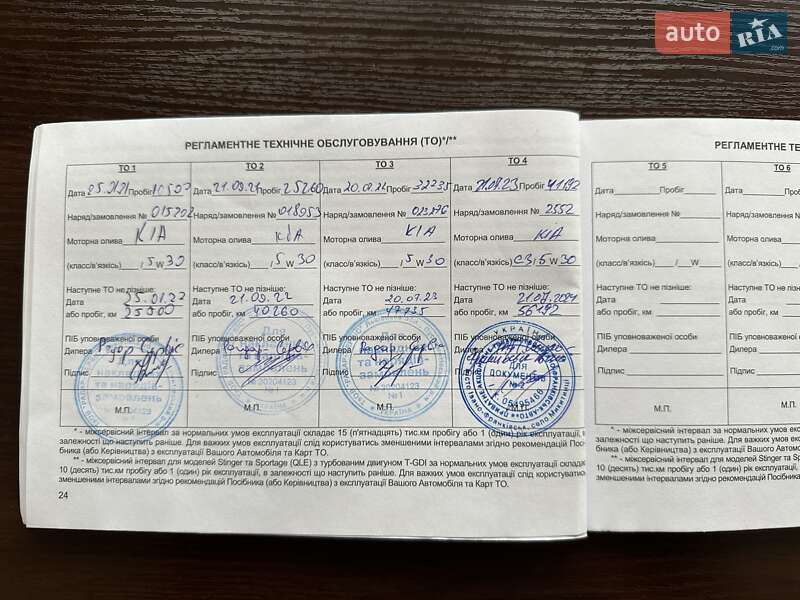 auto RIA.com
РЕГЛАМЕНТНЕ ТЕХНІЧНЕ ОБСЛУГОВУВАННЯ (ТО)*/**
ТО 1
Дата Пробіг
Наряд/замовлення № 015202
Моторна олива KIA
(класс/в'язкість) , 5 W 30
Наступне ТО не пізніше:
Дата 25.01.22
або пробіг, км 25000
ПІБ уповноваженої особи
Дилера
Підпис
М.П.
ТО 2
Дата 21.09.21 Пробіг 25260
Наряд/замовлення № 018953
Моторна олива KIA
(класс/в'язкість) , 5 W 30
Наступне ТО не пізніше:
Дата 21.09.22
або пробіг, км 40260
ПІБ уповноваженої особи
Дилера
Підпис
М.П.
ТО 3
Дата 20.07.22 Пробіг 32235
Наряд/замовлення № 023276
Моторна олива KIA
(класс/в'язкість) , 5 W 30
Наступне ТО не пізніше:
Дата 20.07.23
або пробіг, км 47235
ПІБ уповноваженої особи
Дилера
Підпис
М.П.
ТО 4
Дата 21.07.23 Пробіг 41192
Наряд/замовлення № 2552
Моторна олива KIA
(класс/в'язкість) C3, 5 W 30
Наступне ТО не пізніше:
Дата 21.07.2024
або пробіг, км 56192
ПІБ уповноваженої особи
Дилера
Підпис
М.П.
Для
накладних
та
замовлень
№ 20204123
№1
УКРАЇНА
УКРАЇНА
ДЛЯ
ДОКУМЕНТІВ
№ 2
* - міжсервісний інтервал за нормальних умов експлуатації складає 15 (п'ятнадцять) тис.км пробігу або 1 (один) рік експлуатації, в
залежності що наступить раніше. Для важких умов експлуатації слід користуватись зменшеними інтервалами згідно рекомендацій Посібника
(або Керівництва) з експлуатації Вашого Автомобіля та Карт ТО.
** - міжсервісний інтервал для моделей Stinger та Sportage (QLE) з турбованим двигуном T-GDI за нормальних умов експлуатації складає
10 (десять) тис.км пробігу або 1 (один) рік експлуатації, в залежності що наступить раніше. Для важких умов експлуатації слід користуватись
зменшеними інтервалами згідно рекомендацій Посібника (або Керівництва) з експлуатації Вашого Автомобіля та Карт ТО.
24
РЕГЛАМЕНТНЕ ТЕ
ТО 5
Дата Пробіг
Наряд/замовлення №
Моторна олива
(класс/в'язкість) , W
Наступне ТО не пізніше:
Дата
або пробіг, км
ПІБ уповноваженої особи
Дилера
Підпис
М.П.
ТО 6
Дата Пр
Наряд/замовле
Моторна олива
(класс/в'язкість)
Наступне ТО не
Дата
або пробіг, км
ПІБ уповноваже
Дилера
Підпис
М.П.
* - міжсервісний інтервал за нормальних умо
залежності що наступить раніше. Для важких умов
(або Керівництва) з експлуатації Вашого А
** - міжсервісний інтервал для моделей Stinger та Sp
10 (десять) тис.км пробігу або 1 (один) рік експлуата
зменшеними інтервалами згідно рекомендацій Посібника